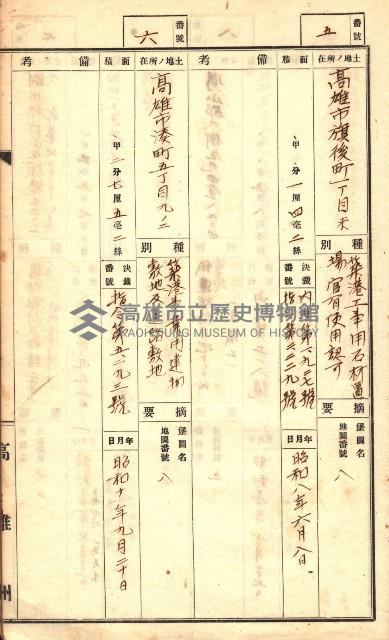 番號
五
土地ノ所在
高雄市旗後町一丁目
面積
甲
分一厘四毫二絲
種別
築港工事用石材置
場官有使用認可
決裁番號
摘要
堡圖名
地圖番號
八
年月日
昭和八年六月八日
備考
番號
六
土地ノ所在
高雄市湊町五丁目九ノ二
面積
甲二分七厘五毫二絲
種別
築港工事用建物
敷地及道路敷地
決裁番號
指令第五二九三號
摘要
堡圖名
地圖番號
八
年月日
昭和十年九月二十日
備考
高雄州
高雄市立歷史博物館
KAOHSIUNG MUSEUM OF HISTORY